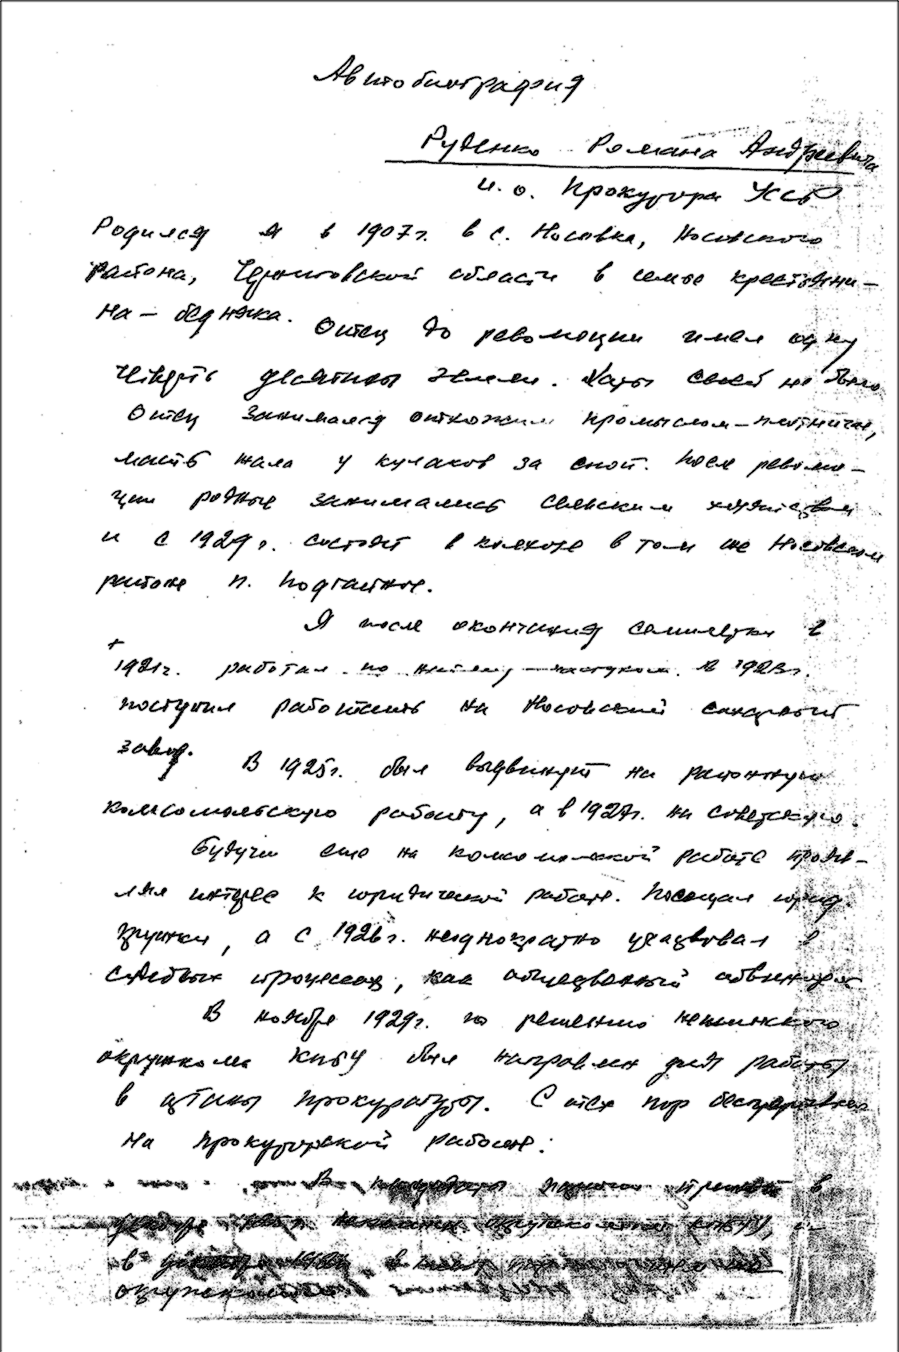 Автобиография
Руденко Романа Андреевича
и.о. Прокурора УССР
Родился я в 1907г. в с. Носовка, Носовского
района, Черниговской области в семье крестьяни-
на-бедняка.
Отец до революции имел одну
четверть десятины земли. Хаты своей не было.
Отец занимался отхожим промыслом-плотничал,
мать жала у кулаков за сноп. После револю-
ции родные занимались сельским хозяйством
и с 1929г. состоят в колхозе в том же Носовском
районе п. Подгайное.
Я после окончания семилетки в
1921г. работал по найму-пастухом. В 1923г.
поступил работать на Носовский сахарный
завод.
В 1925г. был выдвинут на районную
комсомольскую работу, а в 1927г. на советскую.
Будучи еще на комсомольской работе прояв-
лял интерес к юридической работе. Посещал юрид.
кружки, а с 1926г. неоднократно участвовал в
судебных процессах, как общественный обвинитель
В ноябре 1929г. по решению нежинского
окружкома КПбУ был направлен для работы
в органы прокуратуры. С тех пор беспрерывно
на прокурорской работе.
В кандидаты партии принят в
декабре окружкомом КПбУ,
в декабре в члены партии
окружкомом